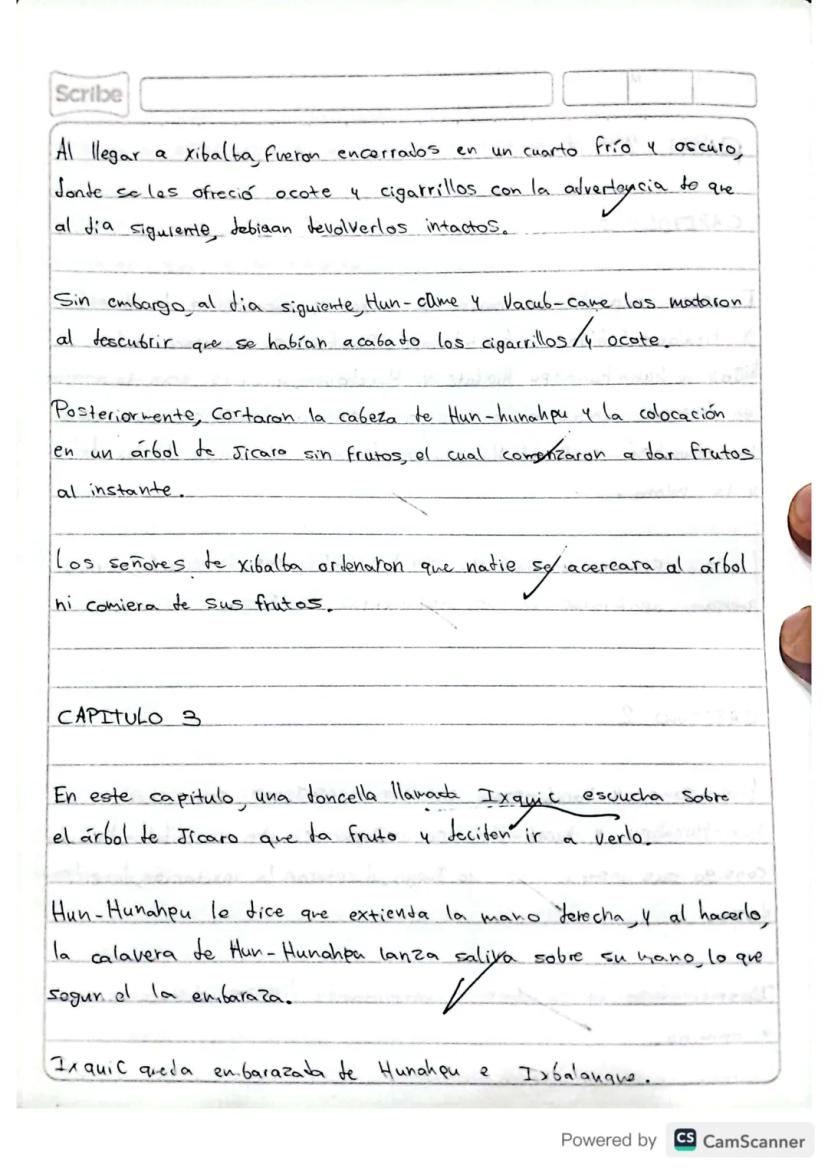 Scribe
Al llegar a xibalba, fueron encerrados en un cuarto frío y oscuro,
donde se les ofreció ocote y cigarrillos con la advertencia de que
al día siguiente, debían devolverlos intactos.
Sin embargo, al dia siguiente, Hun-came y Vacub-came los mataron
al descubrir que se habían acabado los cigarrillos y ocote.
Posteriormente, cortaron la cabeza de Hun-hunahpu y la colocación
en un árbol de Jicaro sin frutos, el cual comenzaron a dar frutos
al instante.
Los señores de xibalba ordenaron que nadie se acercara al árbol
ni comiera de sus frutos.
CAPITULO 3
En este capitulo, una doncella llamada Ixquic escucha sobre
el árbol de Jícaro que da fruto y deciden ir a verlo.
Hun-Hunahpu le dice que extienda la mano derecha, y al hacerlo,
la calavera de Hun-Hunahpu lanza saliva sobre su mano, lo que
segun el la embaraza.
Ixquic queda embarazada de Hunahpu e Ixbalanque.
Powered by CS CamScanner